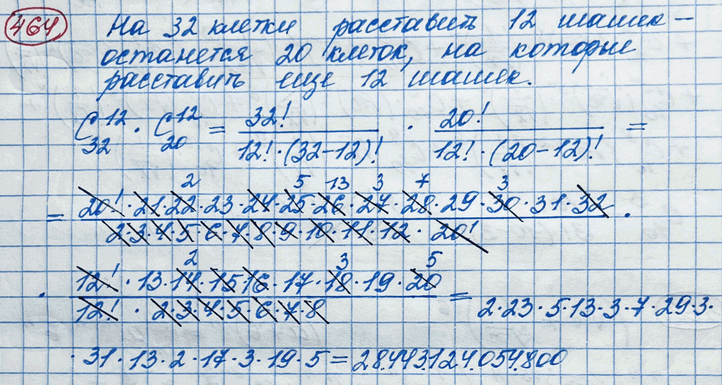 464 На 32 клетки расставить 12 шашек –
останется 20 клеток, на которые
расставить еще 12 шашек.
C₃₂¹² · C₂₀¹² = 32! / 12!·(32-12)! · 20! / 12!·(20-12)! =
= 20!·21·22·23·24·25·26·27·28·29·30·31·32 / 2·3·4·5·6·7·8·9·10·11·12·20! ·
2 5 13 3 7 3
· 12!·13·14·15·16·17·18·19·20 / 12!·2·3·4·5·6·7·8 = 2·23·5·13·3·7·29·3·
2 3 5
·31·13·2·17·3·19·5 = 28.443.124.054.800